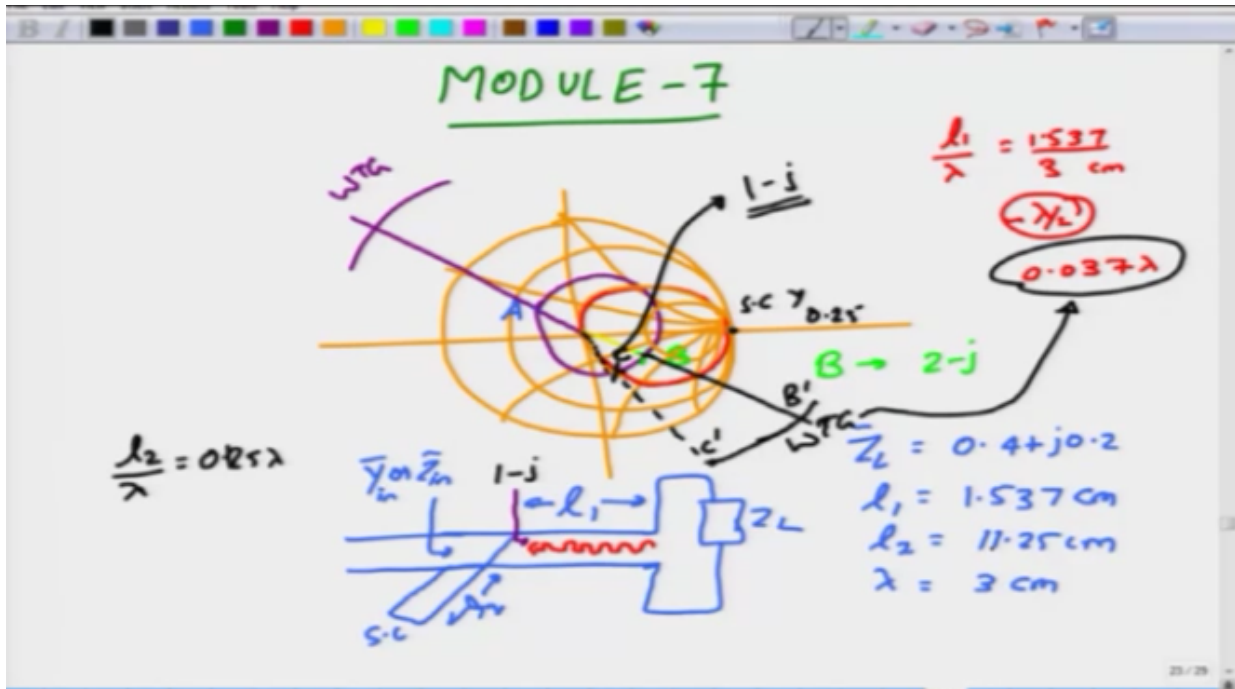 B I
MODULE-7
WTG
1-j
l1/λ = 1.537/3 cm
-λ/2
0.037λ
A
s.c Y 0.25
B
B → 2-j
B'
WTG
C'
l2/λ = 0.25λ
Ȳin or Z̄in
1-j
← l1 →
ZL
s.c
Z̄L = 0.4+j0.2
l1 = 1.537 cm
l2 = 11.25 cm
λ = 3 cm
23/29